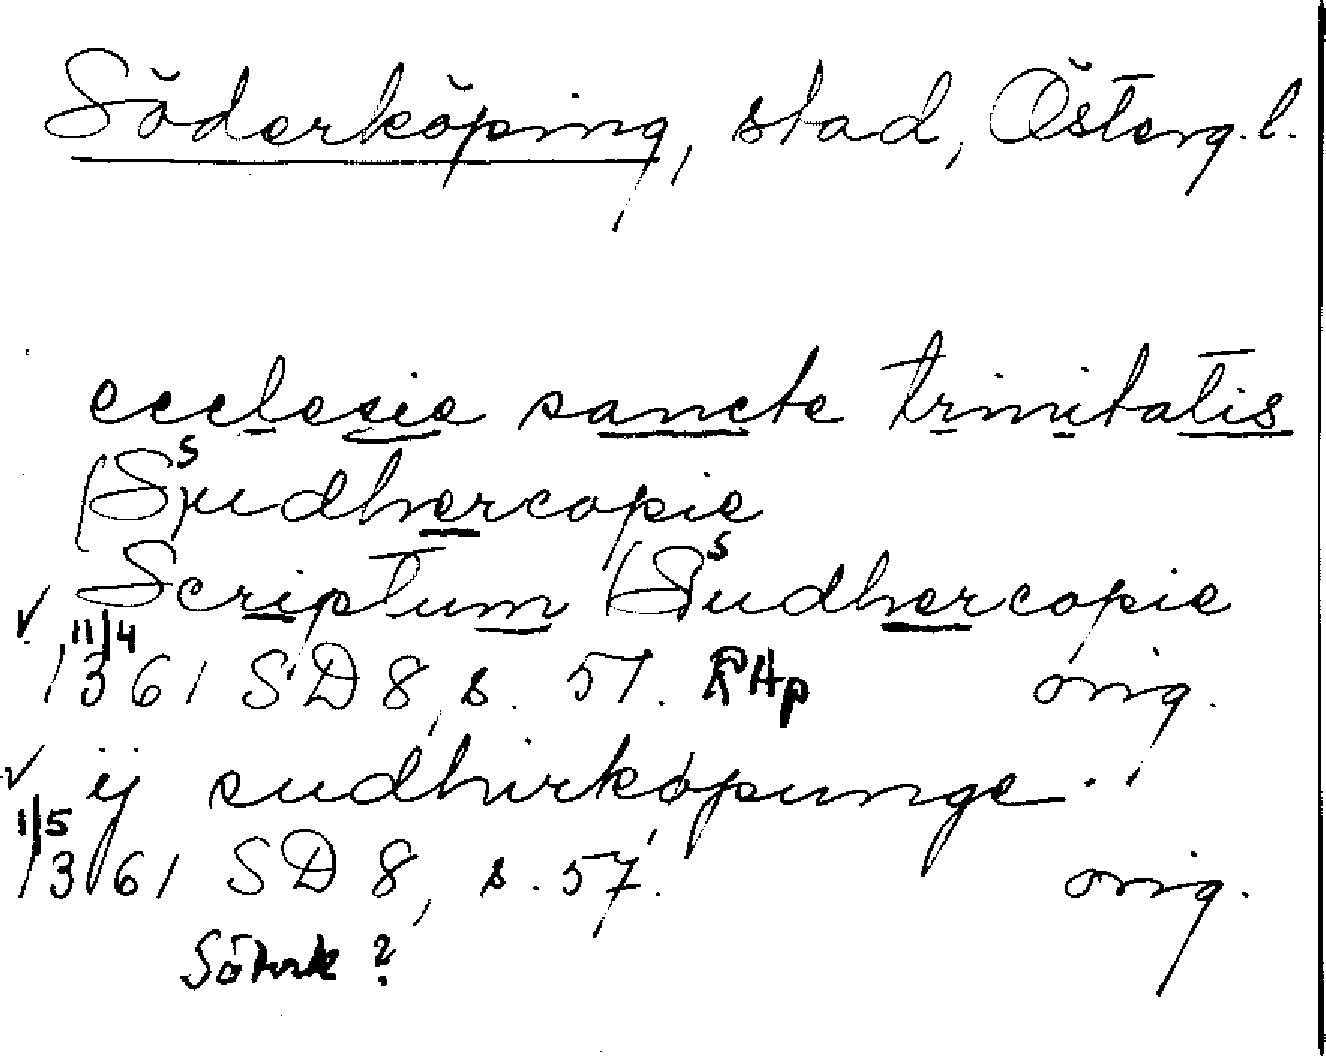 Söderköping, stad, Österg.l.
ecclesie sancte trinitatis
(Sudhercopie
Scriptum (Sudhercopie
11/4
1361 SD 8, s. 51. RAp orig.
ij sudhirköpunge
1/5
1361 SD 8, s. 57. orig.